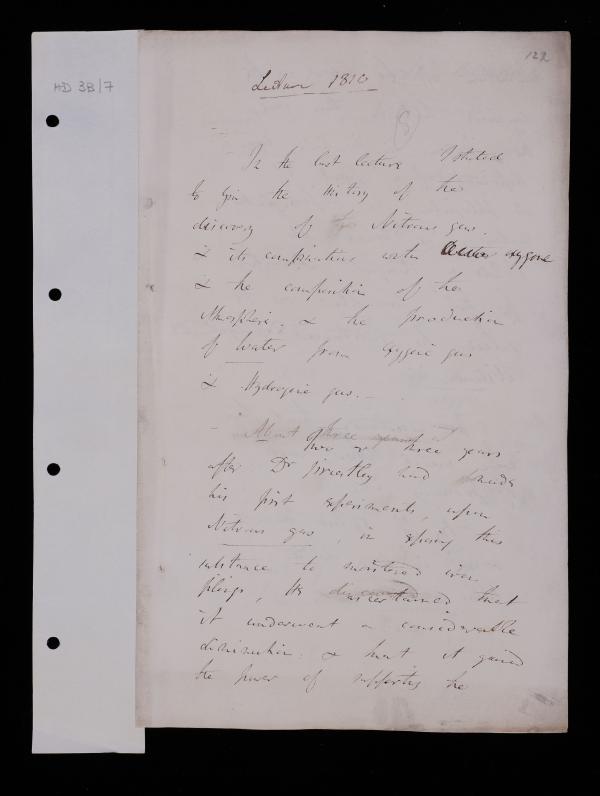 HD 3B/7
122
Lecture 1810
8
In the last lecture I stated
to you the History of the
discovery of Nitrous gas.
& its combinations with oxygene
& the composition of the
Atmosphere. & the production
of Water from oxygene gas
& Hydrogene gas. —
— About three years
two or three years
after Dr Priestley had made
his first experiments, upon
Nitrous gas, in exposing this
substance to moistened iron
filings, He discovered ascertained that
it underwent a considerable
diminution. & that it gained
the power of supporting the